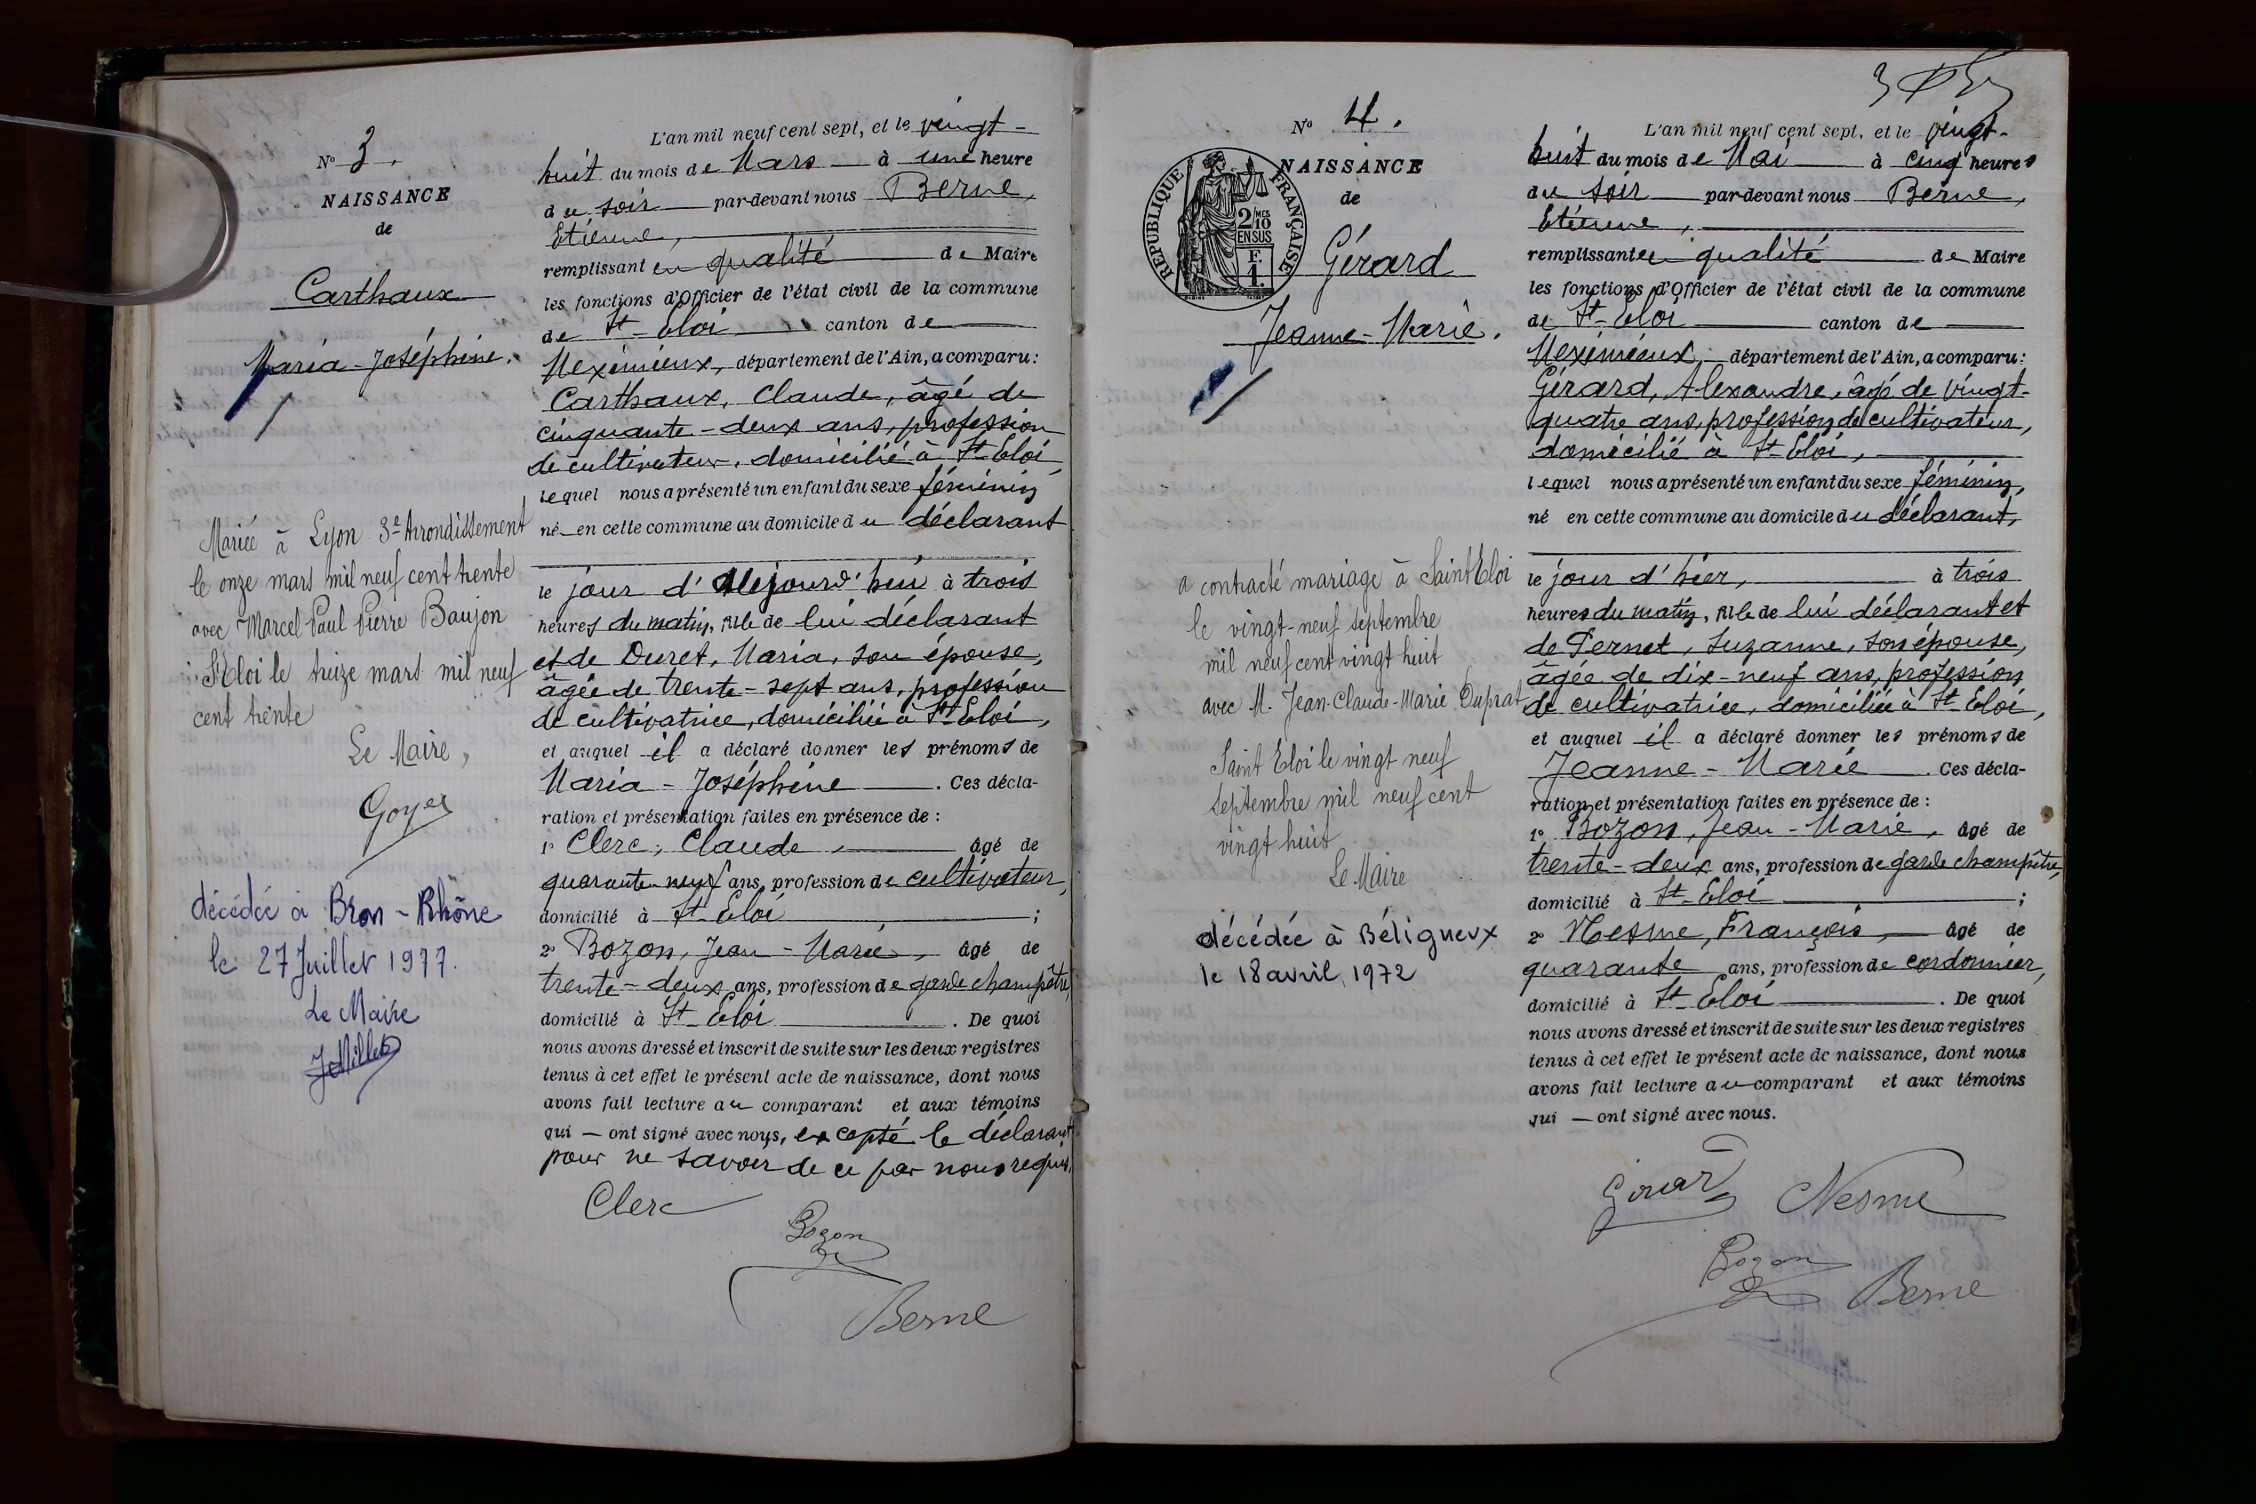 Nº 3.
NAISSANCE
de
Carthaux
Maria-Joséphine.
Mariée à Lyon 3e Arrondissement
le onze mars mil neuf cent trente
avec Marcel Paul Pierre Baujon
St Eloi le treize mars mil neuf
cent trente
Le Maire,
Goyer
décédée à Bron-Rhône
le 27 Juillet 1977.
Le Maire
L'an mil neuf cent sept, et le vingt-
huit du mois de Mars à une heure
du soir par-devant nous Berne,
Etienne,
remplissant en qualité de Maire
les fonctions d'Officier de l'état civil de la commune
de St-Eloi canton de
Meximieux, département de l'Ain, a comparu:
Carthaux, Claude, âgé de
cinquante-deux ans, profession
de cultivateur, domicilié à St-Eloi,
lequel nous a présenté un enfant du sexe féminin
né en cette commune au domicile du déclarant
le jour d'Aujourd'hui à trois
heures du matin, fille de lui déclarant
et de Duret, Maria, son épouse,
âgée de trente-sept ans, profession
de cultivatrice, domiciliée à St-Eloi,
et auquel il a déclaré donner les prénoms de
Maria-Joséphine. Ces décla-
ration et présentation faites en présence de :
1º Clerc, Claude, âgé de
quarante-neuf ans, profession de cultivateur,
domicilié à St-Eloi ;
2º Bozon, Jean-Marie, âgé de
trente-deux ans, profession de garde champêtre,
domicilié à St-Eloi. De quoi
nous avons dressé et inscrit de suite sur les deux registres
tenus à cet effet le présent acte de naissance, dont nous
avons fait lecture au comparant et aux témoins
qui — ont signé avec nous, excepté le déclarant
pour ne savoir de ce par nous requis.
Clerc
Bozon
Berne
3
Nº 4.
NAISSANCE
de
RÉPUBLIQUE FRANÇAISE
2/10 MES
EN SUS
F.
1.
Gérard
Jeanne-Marie.
a contracté mariage à Saint Eloi
le vingt-neuf septembre
mil neuf cent vingt huit
avec M. Jean-Claude-Marie Duprat
Saint Eloi le vingt neuf
septembre mil neuf cent
vingt huit
Le Maire
décédée à Béligneux
le 18 avril 1972
L'an mil neuf cent sept, et le vingt-
huit du mois de Mai à cinq heures
du soir par-devant nous Berne,
Etienne,
remplissant en qualité de Maire
les fonctions d'Officier de l'état civil de la commune
de St-Eloi canton de
Meximieux, département de l'Ain, a comparu:
Gérard, Alexandre, âgé de vingt-
quatre ans, profession de cultivateur,
domicilié à St-Eloi,
lequel nous a présenté un enfant du sexe féminin,
né en cette commune au domicile du déclarant,
le jour d'hier, à trois
heures du matin, fille de lui déclarant et
de Pernet, Suzanne, son épouse,
âgée de dix-neuf ans, profession
de cultivatrice, domiciliée à St-Eloi,
et auquel il a déclaré donner les prénoms de
Jeanne-Marie. Ces décla-
ration et présentation faites en présence de :
1º Bozon, Jean-Marie, âgé de
trente-deux ans, profession de garde champêtre,
domicilié à St-Eloi ;
2º Nesme, François, âgé de
quarante ans, profession de cordonnier,
domicilié à St-Eloi. De quoi
nous avons dressé et inscrit de suite sur les deux registres
tenus à cet effet le présent acte de naissance, dont nous
avons fait lecture au comparant et aux témoins
qui — ont signé avec nous.
Nesme
Bozon
Berne